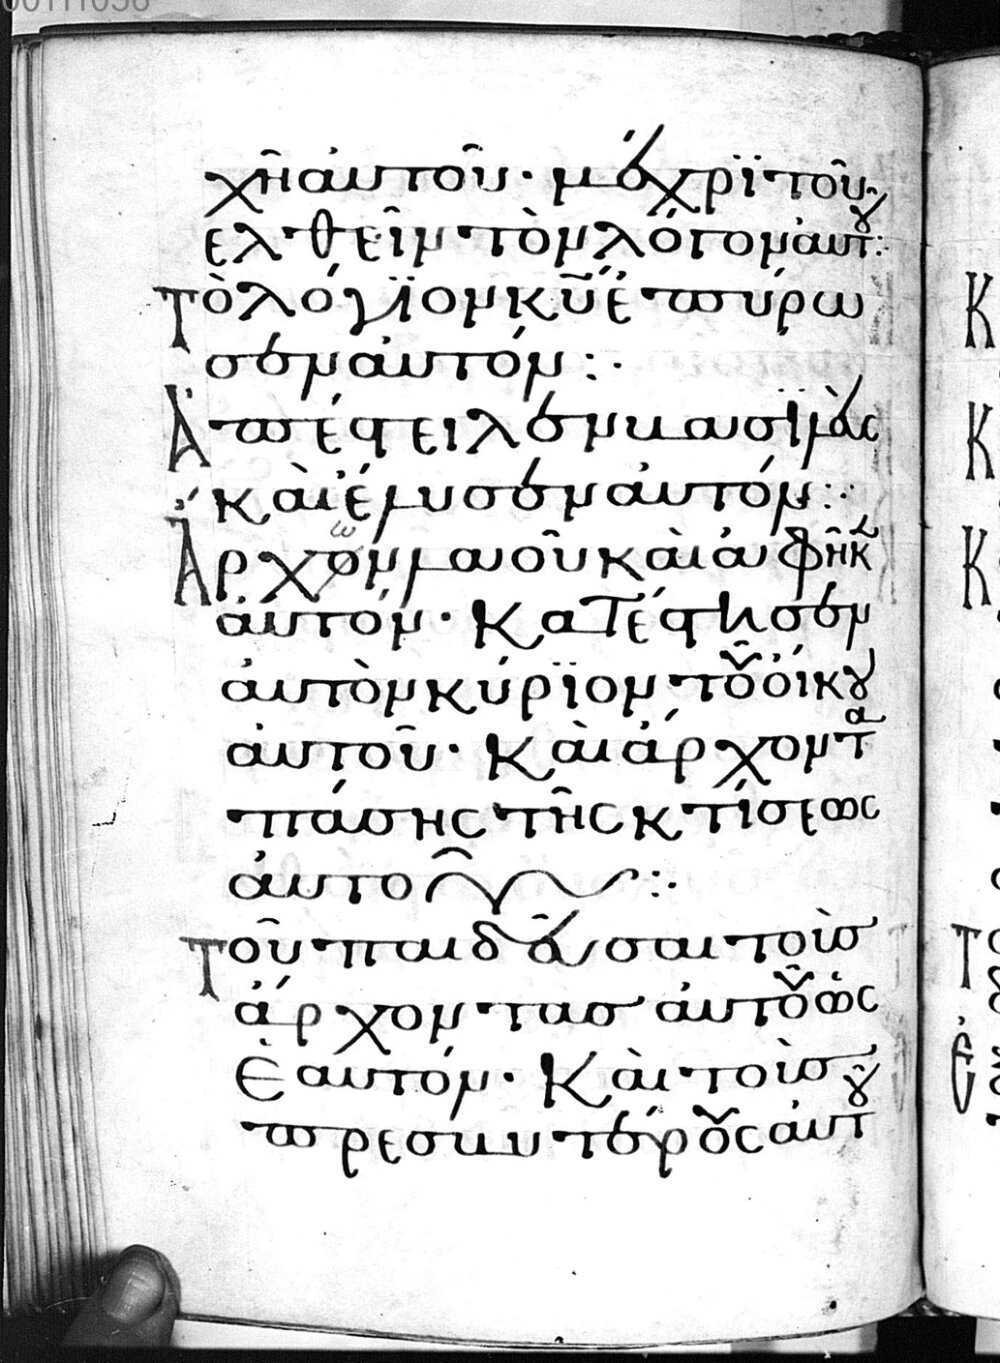 χῆ ἀυτοῦ· μέχρϊ τοῦ
ελθεῖν τὸν λόγον ἀυτοῦ:
Τὸ λόγϊον κ̅υ̅ ἐπύρω
σεν ἀυτόν:·
Ἀπέστειλεν βασϊλὲυς
κὰι ἔλυσεν ἀυτόν:·
Ἄρχων λαοῦ κὰι ἀφῆκεν
ἀυτόν· Κατέστησεν
ἀυτὸν κύρϊον τοῦ ὄικου
ἀυτοῦ· Κὰι ἄρχοντα
πάσης τῆς κτίσεως
ἀυτοῦ:·
Τοῦ παιδεῦσαι τοὺς
ἄρχοντας ἀυτοῦ ὡς
Ἑαυτόν· Κὰι τοὺς
πρεσβυτέρους ἀυτοῦ